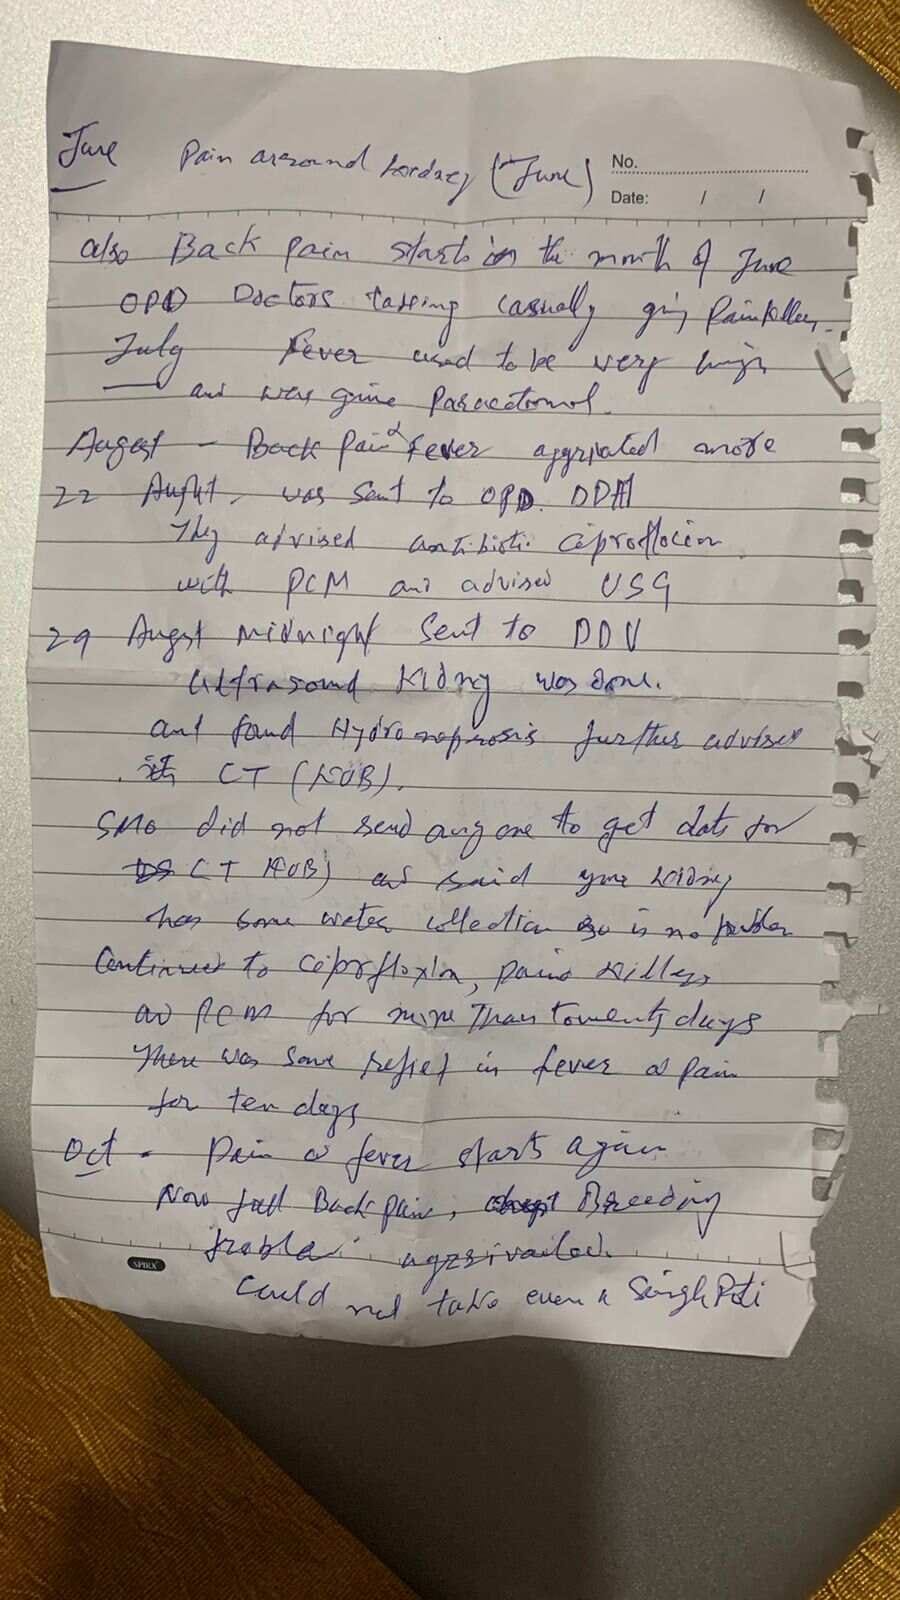 June Pain around kidney (in June)
No.
Date: / /
also Back pain starts in the month of June
OPD Doctors taking casually giving Painkillers.
July Fever used to be very high
and were give Paracetomol.
August - Back Pain & Fever aggrivated more
22 Augst, was sent to OPD. DDH
They advised antibiotic ciprofloxin
with PCM and advised USG
29 Augst midnight Sent to DDU
Ultrasound Kidney was done.
and found Hydronephrosis further advised
CT (KUB).
SMO did not send any one to get date for
CT KUB) and said your kidney
has some water collection so is no problem
Continued to ciprfloxin, pain killers
and PCM for more Than twenty days
There was some relief in fever & pain
for ten days
Oct - Pain & fever starts again
Now full Back pain, Breeding
problem aggrivailed.
SPIRA
Could not take even a Single Roti